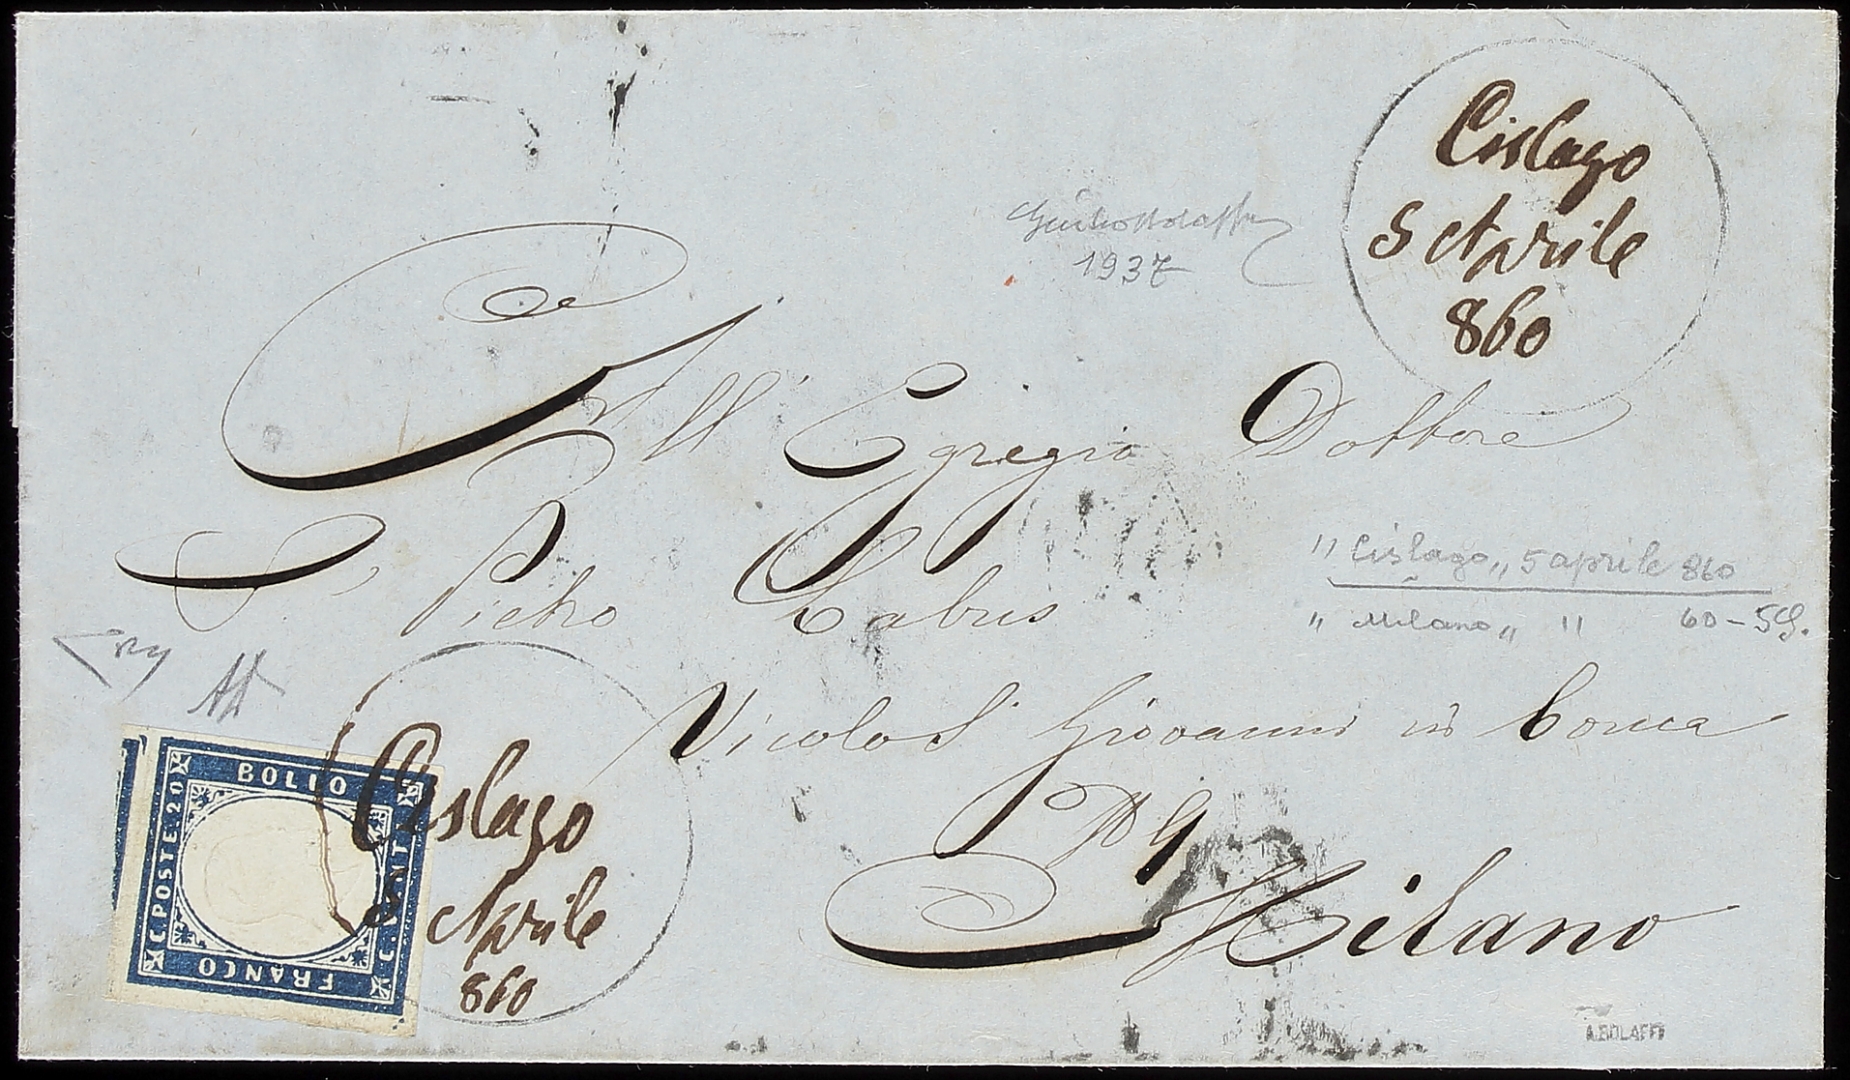 Cislago
5 Aprile
860
1937
All' Egregio Dottore
Pietro Labus
"Cislago" 5 aprile 860
" Milano " " 60-59.
Vicolo S. Giovanni in Conca
Nº 9
Milano
BOLLO
C. POSTE. 20
C. VENTI
FRANCO
Cislago
5 Aprile
860
A.BOLAFFI